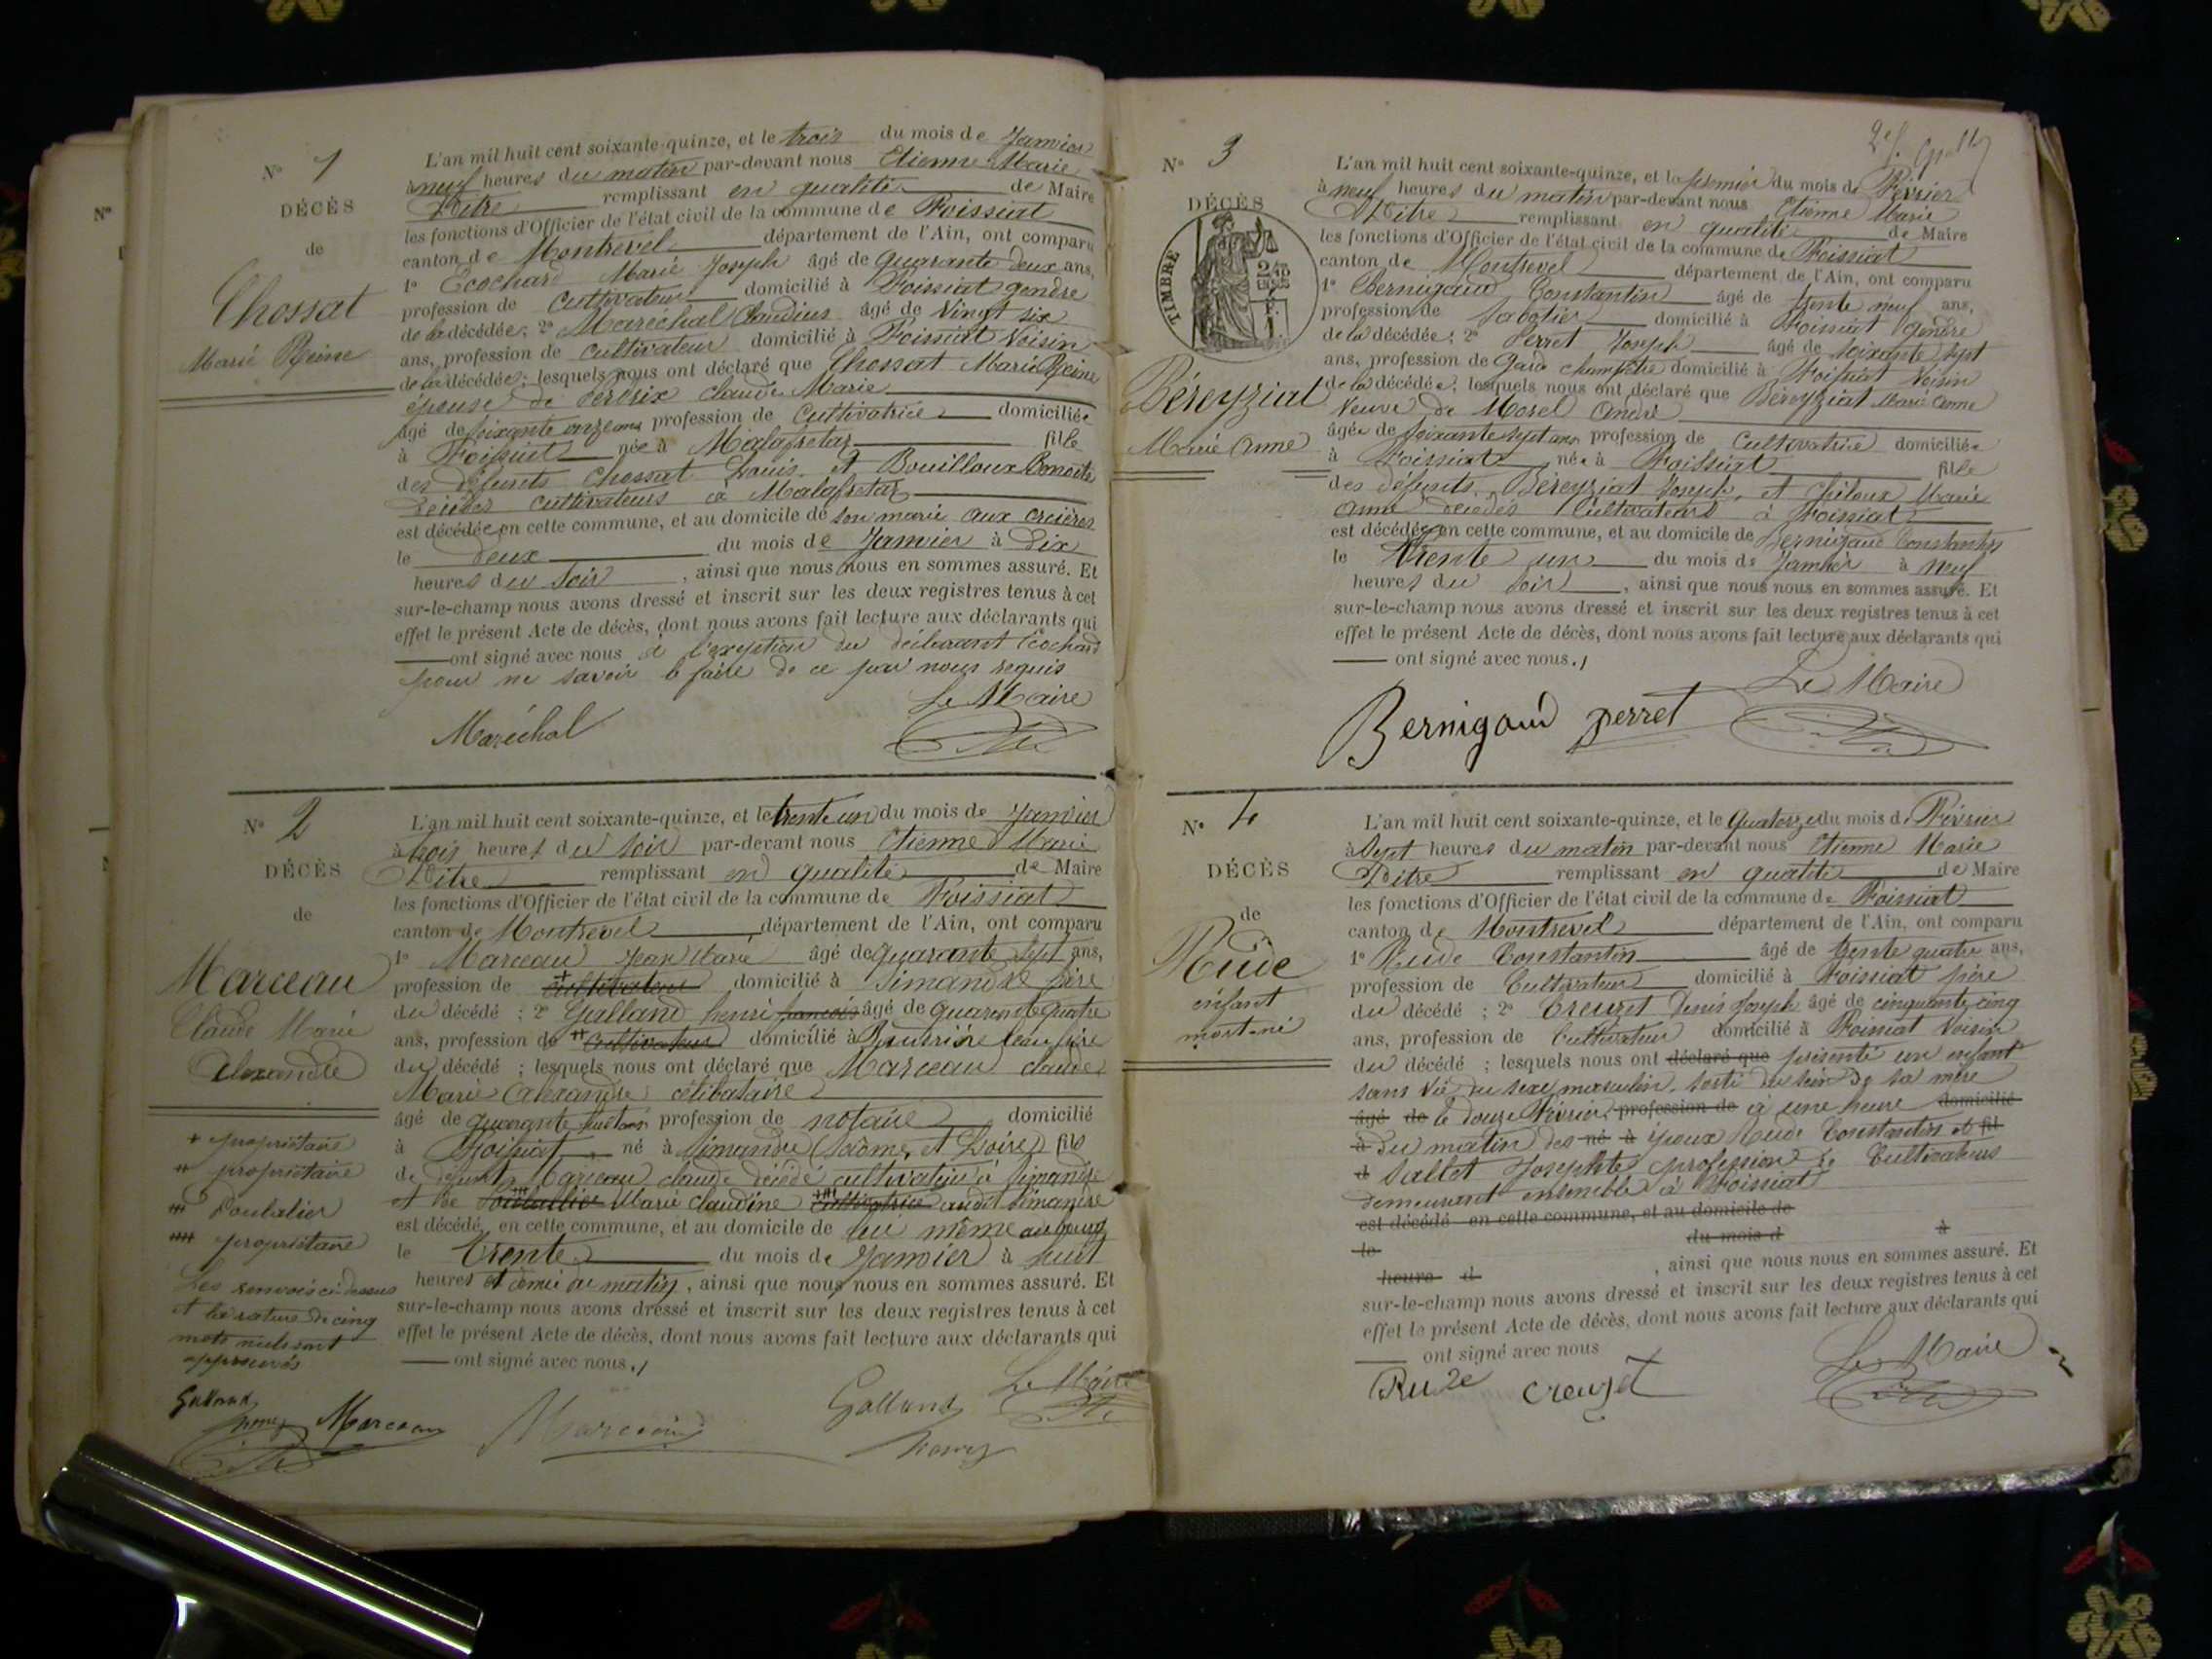 N° 1
DÉCÈS
de
Chossat
Marie Reine
L'an mil huit cent soixante-quinze, et le trois du mois de Janvier
à neuf heures du matin par-devant nous Etienne Marie
Pitre remplissant en qualité de Maire
les fonctions d'Officier de l'état civil de la commune de Foissiat
canton de Montrevel département de l'Ain, ont comparu
1° Ecochard Marie Joseph âgé de quarante deux ans,
profession de cultivateur domicilié à Foissiat gendre
de la décédée; 2° Maréchal Claudius âgé de vingt six
ans, profession de cultivateur domicilié à Foissiat voisin
de la décédée; lesquels nous ont déclaré que Chossat Marie Reine
épouse de Perdrix Claude Marie
âgé de soixante onze ans profession de cultivatrice domiciliée
à Foissiat née à Malafretaz fille
des défunts Chossat Louis et Bouilloux Benoite
cultivateurs à Malafretaz
est décédée en cette commune, et au domicile de son marie aux
le deux du mois de Janvier à dix
heures du soir, ainsi que nous nous en sommes assuré. Et
sur-le-champ nous avons dressé et inscrit sur les deux registres tenus à cet
effet le présent Acte de décès, dont nous avons fait lecture aux déclarants qui
ont signé avec nous à l'exception du déclarant Ecochard
pour ne savoir le faire de ce par nous requis
Le Maire
Maréchal
N° 2
DÉCÈS
de
Marceau
Claude Marie
Alexandre
+ propriétaire
++ propriétaire
+++
++++ propriétaire
Les renvois ci dessus
et la rature de cinq
mots nuls sont
approuvés
Galland
henry Marceau
L'an mil huit cent soixante-quinze, et le trente un du mois de Janvier
à trois heures du soir par-devant nous Etienne Marie
Pitre remplissant en qualité de Maire
les fonctions d'Officier de l'état civil de la commune de Foissiat
canton de Montrevel département de l'Ain, ont comparu
1° Marceau Jean Marie âgé de quarante sept ans,
profession de + cultivateur domicilié à Simandre frère
du décédé; 2° Galland henri françois âgé de quarante quatre
ans, profession de ++ cultivateur domicilié à beau frère
du décédé; lesquels nous ont déclaré que Marceau claude
Marie Alexandre célibataire
âgé de quarante huit ans profession de notaire domicilié
à Foissiat, né à Simandre (Saône et Loire) fils
de défunt Marceau claude décédé cultivateur à Simandre
et de Marie claudine ++++ cultivatrice audit Simandre
est décédé en cette commune, et au domicile de lui même au bourg
le trente du mois de Janvier à huit
heures et demie du matin, ainsi que nous nous en sommes assuré. Et
sur-le-champ nous avons dressé et inscrit sur les deux registres tenus à cet
effet le présent Acte de décès, dont nous avons fait lecture aux déclarants qui
ont signé avec nous./
Le Maire
Marceau Galland
henry
N° 3
DÉCÈS
TIMBRE
Béreyziat
Marie Anne
L'an mil huit cent soixante-quinze, et le premier du mois de Février
à neuf heures du matin par-devant nous Etienne Marie
Pitre remplissant en qualité de Maire
les fonctions d'Officier de l'état civil de la commune de Foissiat
canton de Montrevel département de l'Ain, ont comparu
1° Bernigaud Constantin âgé de trente neuf ans,
profession de sabotier domicilié à Foissiat gendre
de la décédée; 2° Perret Joseph âgé de soixante sept
ans, profession de garde champêtre domicilié à Foissiat voisin
de la décédée; lesquels nous ont déclaré que Béreyziat Marie Anne
Veuve de Morel André
âgée de soixante sept ans profession de cultivatrice domiciliée
à Foissiat, née à Foissiat fille
des défunts Béreyziat Joseph et Marie
Anne décédés cultivateurs à Foissiat
est décédée en cette commune, et au domicile de Bernigaud Constantin
le trente un du mois de Janvier à neuf
heures du soir, ainsi que nous nous en sommes assuré. Et
sur-le-champ nous avons dressé et inscrit sur les deux registres tenus à cet
effet le présent Acte de décès, dont nous avons fait lecture aux déclarants qui
ont signé avec nous./
Le Maire
Bernigaud perret
N° 4
DÉCÈS
de
Rude
enfant
mort né
L'an mil huit cent soixante-quinze, et le quatorze du mois de Février
à sept heures du matin par-devant nous Etienne Marie
Pitre remplissant en qualité de Maire
les fonctions d'Officier de l'état civil de la commune de Foissiat
canton de Montrevel département de l'Ain, ont comparu
1° Rude Constantin âgé de trente quatre ans,
profession de Cultivateur domicilié à Foissiat père
du décédé; 2° Creuzet Denis Joseph âgé de cinquante cinq
ans, profession de Cultivateur domicilié à Foissiat voisin
du décédé; lesquels nous ont déclaré que présenté un enfant
sans vie du sexe masculin, sorti du sein de sa mère
âgé de le douze Février profession de à une heure domicilié
à du matin des né à époux Rude Constantin et fil
d Sallet Josephte profession de Cultivateurs
demeurant ensemble à Foissiat
est décédé en cette commune, et au domicile de
le du mois d à
heure d , ainsi que nous nous en sommes assuré. Et
sur-le-champ nous avons dressé et inscrit sur les deux registres tenus à cet
effet le présent Acte de décès, dont nous avons fait lecture aux déclarants qui
ont signé avec nous
Le Maire
Rude creuzet